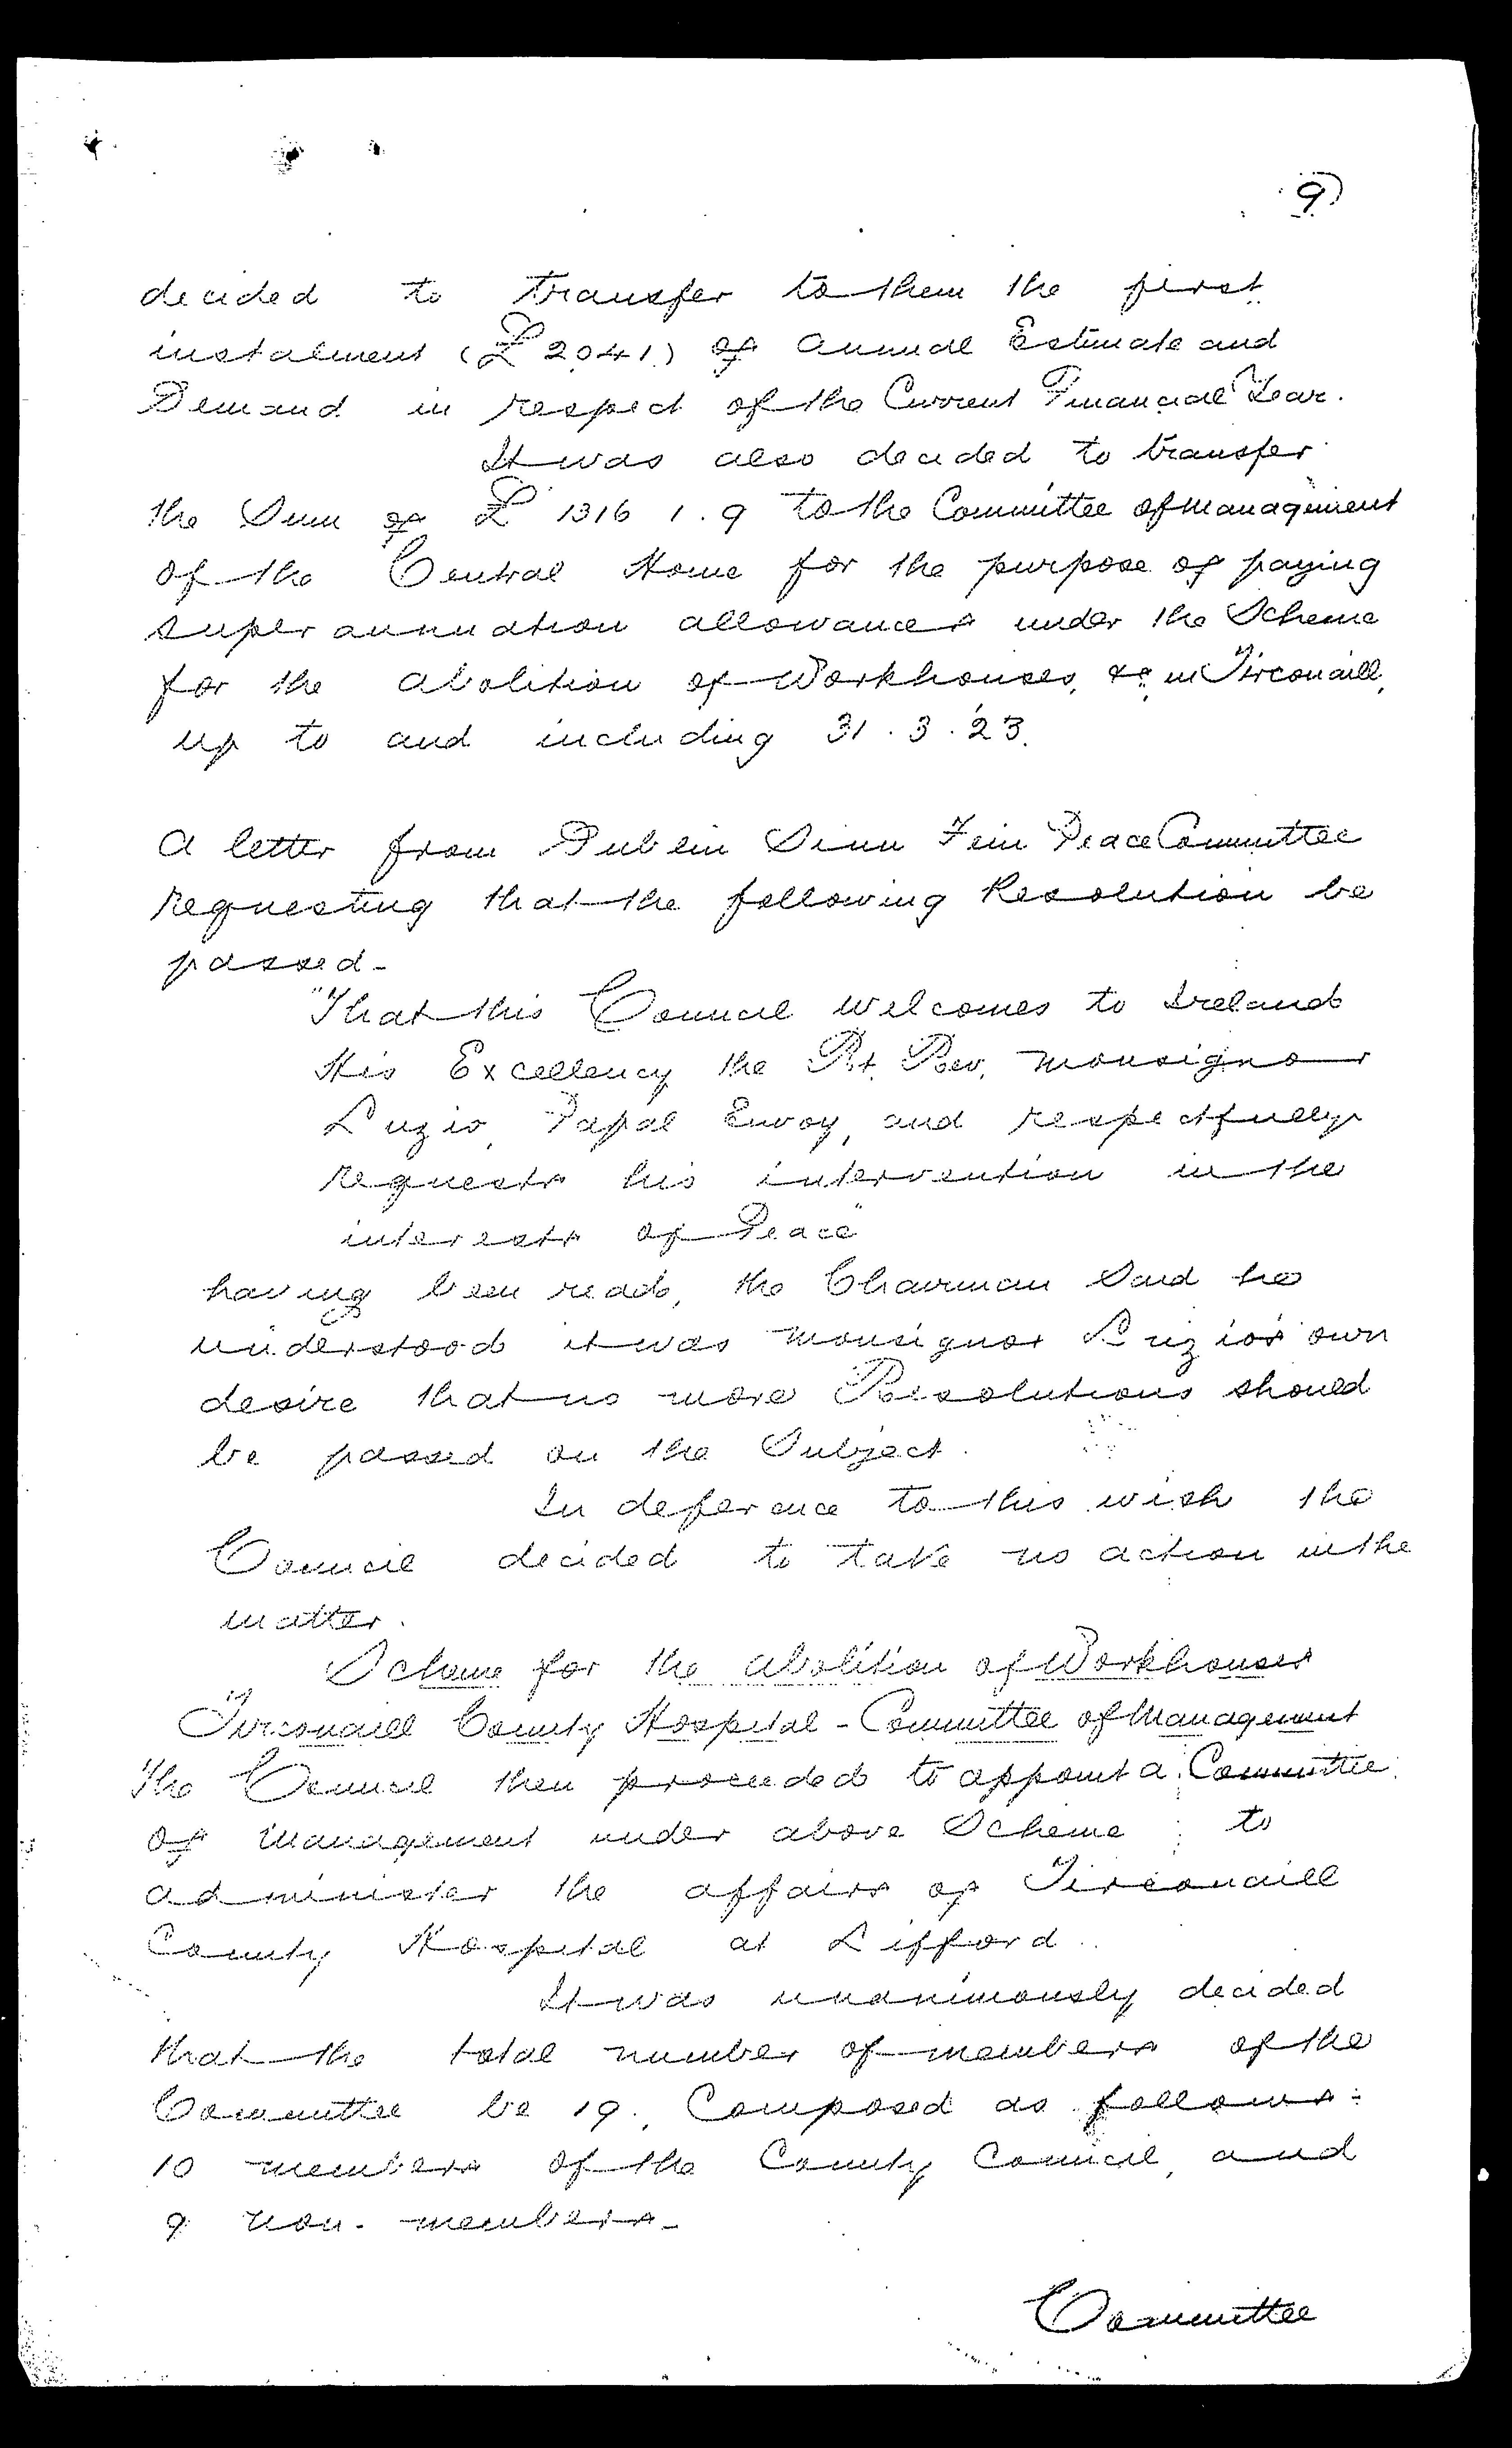 9)
decided to transfer to them the first
instalment (£2041) of Annual Estimate and
Demand in respect of the Current Financial Year.
It was also decided to transfer
the Sum of £1316 1. 9 to the Committee of Management
of the Central Home for the purpose of paying
superannuation allowances under the Scheme
for the abolition of Workhouses, &c in Tirconaill,
up to and including 31. 3. '23.
A letter from Dublin Sinn Fein Peace Committee
requesting that the following Resolution be
passed -
"That this Council welcomes to Ireland
His Excellency the Rt. Rev. Monsignor
Luzio, Papal Envoy, and respectfully
requests his intervention in the
interests of Peace"
having been read, the Chairman said he
understood it was Monsignor Luzio's own
desire that no more Resolutions should
be passed on the Subject.
In deference to this wish the
Council decided to take no action in the
matter.
Scheme for the abolition of Workhouses
Tirconaill County Hospital - Committee of Management
The Council then proceeded to appoint a Committee
of Management under above Scheme to
administer the affairs of Tirconaill
County Hospital at Lifford.
It was unanimously decided
that the total number of members of the
Committee be 19, Composed as follows:
10 members of the County Council, and
9 non-members -
Committee